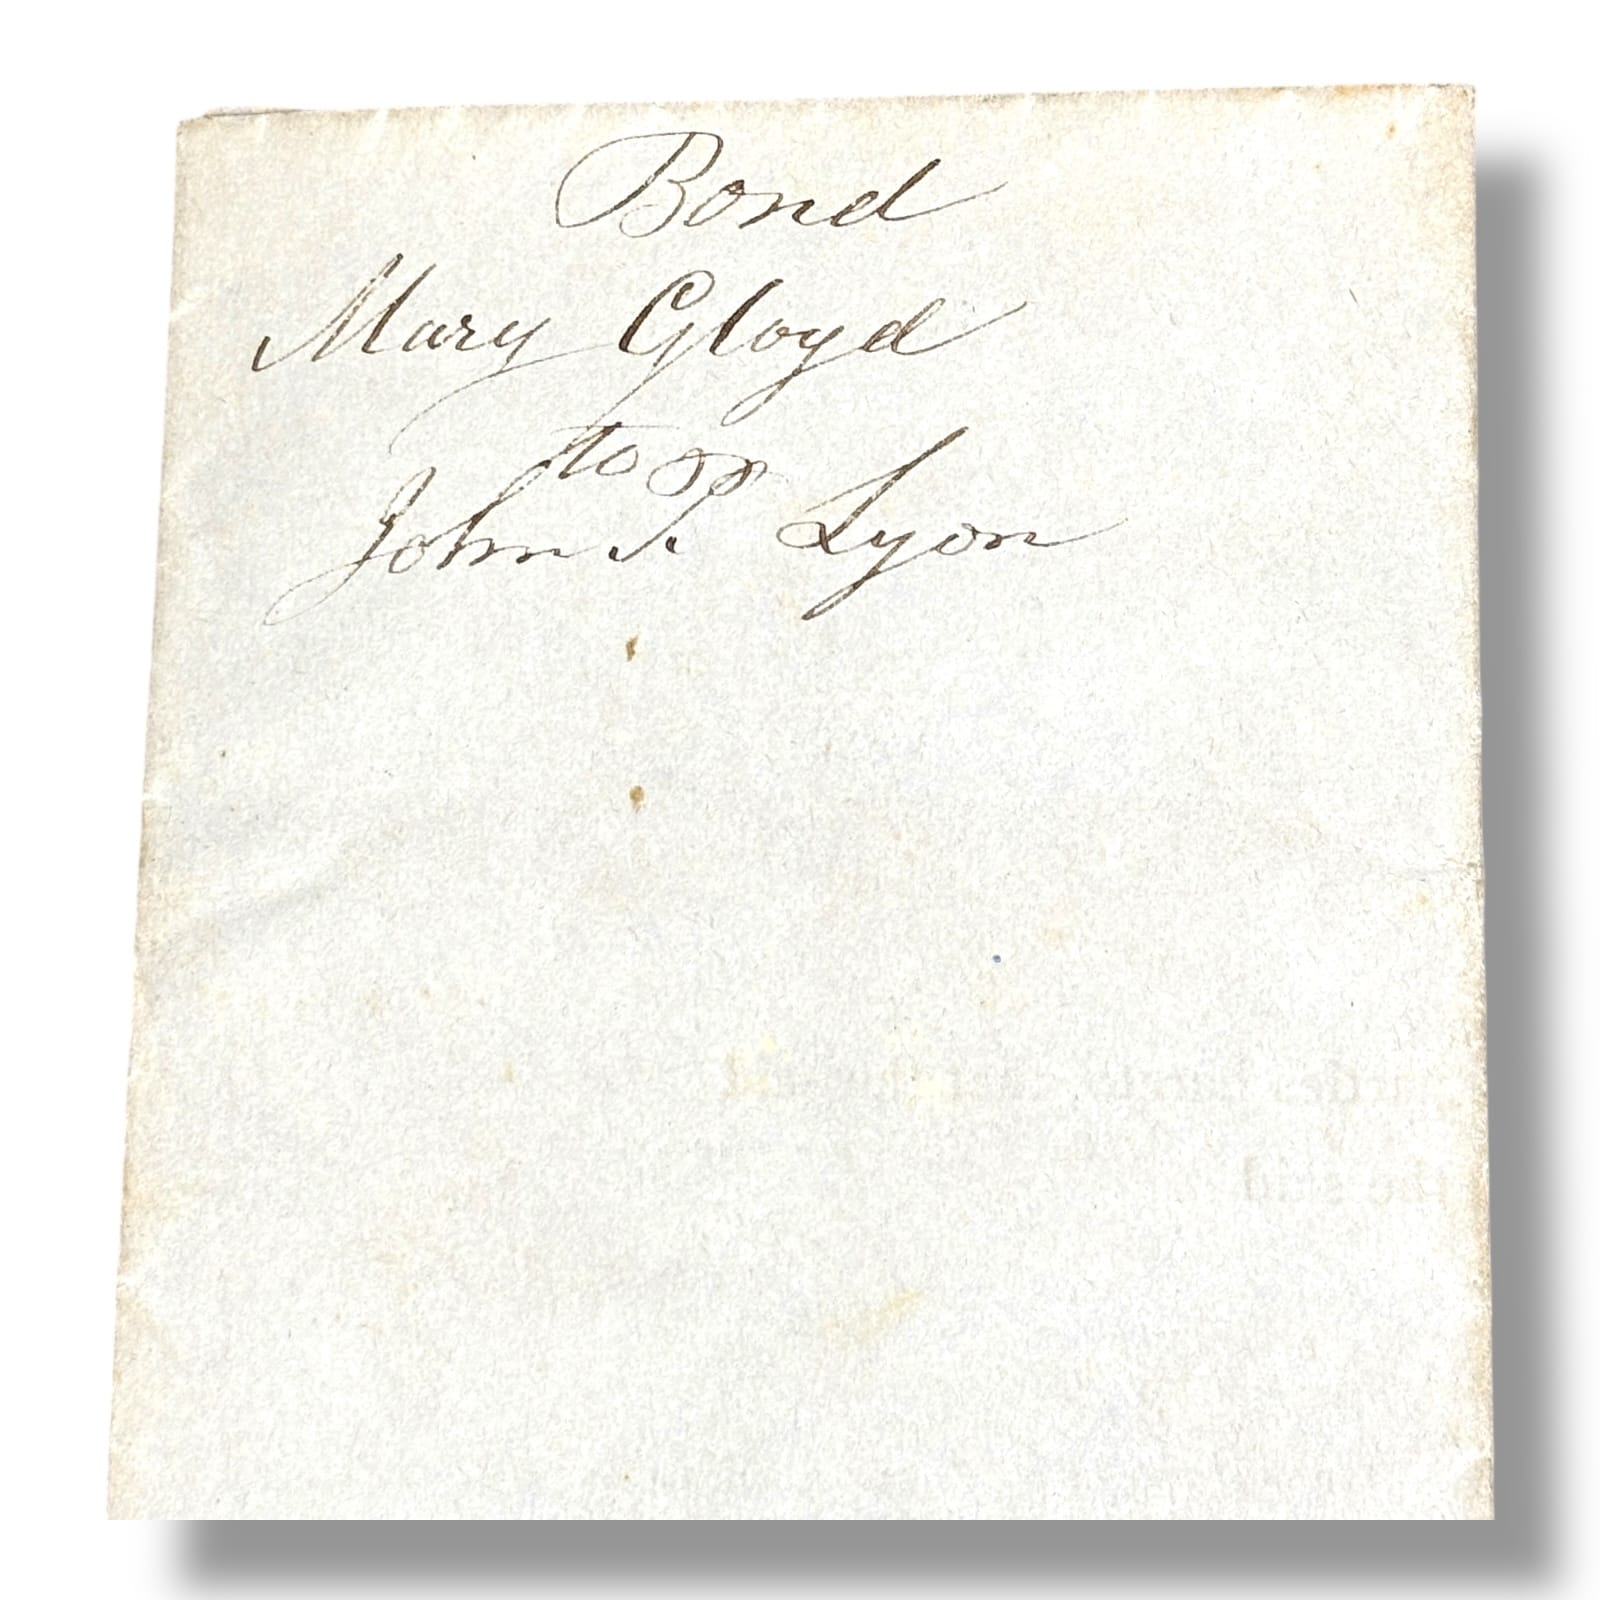 Bond
Mary Gloyd
to
John T. Lyon